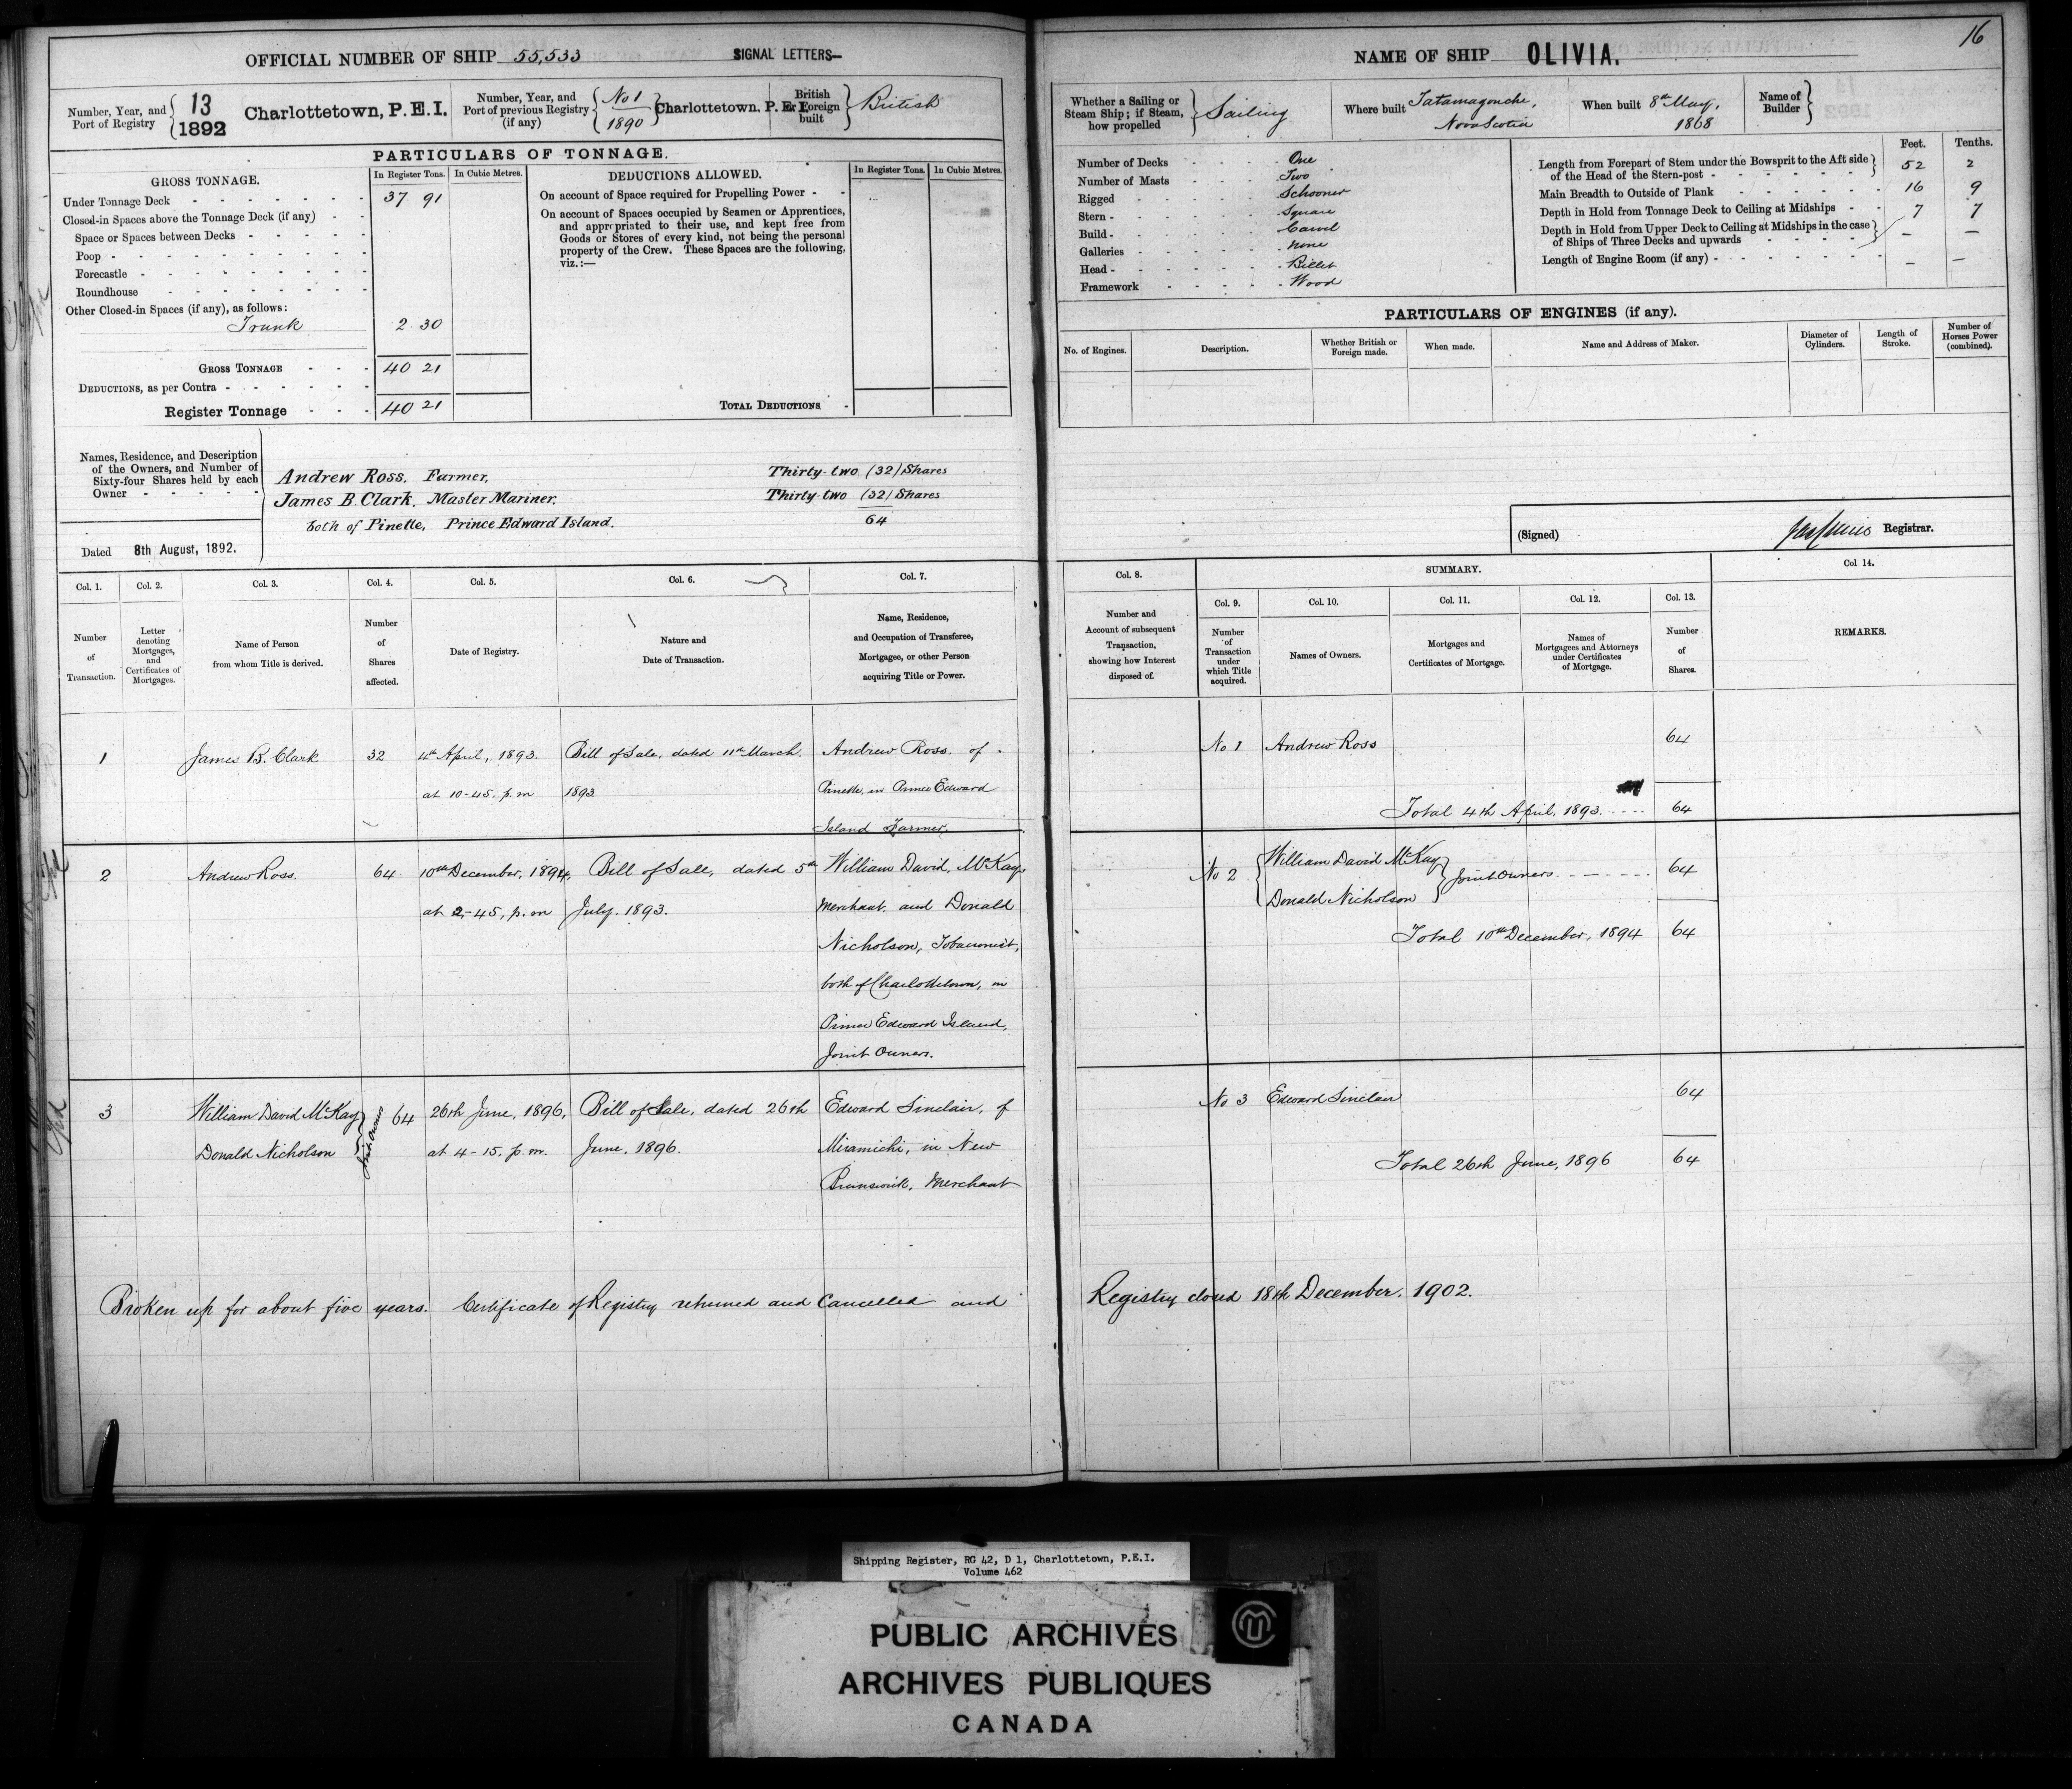 16
OFFICIAL NUMBER OF SHIP 55,533 SIGNAL LETTERS—
Number, Year, and Port of Registry { 13 / 1892 Charlottetown, P.E.I.
Number, Year, and Port of previous Registry (if any) { No 1 / 1890 } Charlottetown. P. E. I.
British or Foreign built } British
PARTICULARS OF TONNAGE.
GROSS TONNAGE. In Register Tons. In Cubic Metres.
Under Tonnage Deck - 37 91
Closed-in Spaces above the Tonnage Deck (if any) - -
Space or Spaces between Decks -
Poop -
Forecastle -
Roundhouse -
Other Closed-in Spaces (if any), as follows:
Trunk 2 30
GROSS TONNAGE - - - 40 21
DEDUCTIONS, as per Contra -
Register Tonnage - - - 40 21
DEDUCTIONS ALLOWED. In Register Tons. In Cubic Metres.
On account of Space required for Propelling Power - -
On account of Spaces occupied by Seamen or Apprentices,
and appropriated to their use, and kept free from
Goods or Stores of every kind, not being the personal
property of the Crew. These Spaces are the following,
viz.:—
TOTAL DEDUCTIONS -
Names, Residence, and Description
of the Owners, and Number of
Sixty-four Shares held by each
Owner - - - - -
Andrew Ross, Farmer, Thirty-two (32) Shares
James B. Clark, Master Mariner. Thirty-two (32) Shares
both of Pinette, Prince Edward Island. 64
Dated 8th August, 1892.
NAME OF SHIP OLIVIA.
Whether a Sailing or Steam Ship; if Steam, how propelled } Sailing
Where built Tatamagouche, Nova Scotia
When built 8th May, 1868
Name of Builder }
Number of Decks - One
Number of Masts - Two
Rigged - Schooner
Stern - Square
Build - Carvel
Galleries - None
Head - Billet
Framework - Wood
Feet. Tenths.
Length from Forepart of Stem under the Bowsprit to the Aft side
of the Head of the Stern-post - 52 2
Main Breadth to Outside of Plank - 16 9
Depth in Hold from Tonnage Deck to Ceiling at Midships - 7 7
Depth in Hold from Upper Deck to Ceiling at Midships in the case
of Ships of Three Decks and upwards - — —
Length of Engine Room (if any) - — —
PARTICULARS OF ENGINES (if any).
No. of Engines. Description. Whether British or Foreign made. When made. Name and Address of Maker. Diameter of Cylinders. Length of Stroke. Number of Horses Power (combined).
(Signed) Registrar.
Col. 1. Col. 2. Col. 3. Col. 4. Col. 5. Col. 6. Col. 7.
Number of Transaction.
Letter denoting Mortgages, and Certificates of Mortgages.
Name of Person from whom Title is derived.
Number of Shares affected.
Date of Registry.
Nature and Date of Transaction.
Name, Residence, and Occupation of Transferee, Mortgagee, or other Person acquiring Title or Power.
1 James B. Clark 32 4th April, 1893. Bill of Sale, dated 11th March. Andrew Ross. of
at 10-45. p.m 1893 Pinette, in Prince Edward
Island Farmer.
2 Andrew Ross. 64 10th December, 1894, Bill of Sale, dated 5th William David McKay,
at 2-45, p.m July. 1893. Merchant. and Donald
Nicholson, Tobacconist,
both of Charlottetown, in
Prince Edward Island,
Joint Owners.
3 William David McKay Donald Nicholson } Joint Owners 64 26th June, 1896, Bill of Sale, dated 26th Edward Sinclair, of
at 4-15, p.m. June, 1896. Miramichi, in New
Brunswick, Merchant
Col. 8. SUMMARY. Col 14.
Col. 9. Col. 10. Col. 11. Col. 12. Col. 13.
Number and Account of subsequent Transaction, showing how Interest disposed of.
Number of Transaction under which Title acquired.
Names of Owners.
Mortgages and Certificates of Mortgage.
Names of Mortgagees and Attorneys under Certificates of Mortgage.
Number of Shares.
REMARKS.
No 1 Andrew Ross 64
Total 4th April, 1893. 64
No 2 { William David McKay Donald Nicholson } Joint Owners 64
Total 10th December, 1894 64
No 3 Edward Sinclair 64
Total 26th June, 1896 64
Broken up for about five years. Certificate of Registry returned and Cancelled and Registry closed 18th December. 1902.
Shipping Register, RG 42, D 1, Charlottetown, P.E.I.
Volume 462
PUBLIC ARCHIVES
ARCHIVES PUBLIQUES
CANADA